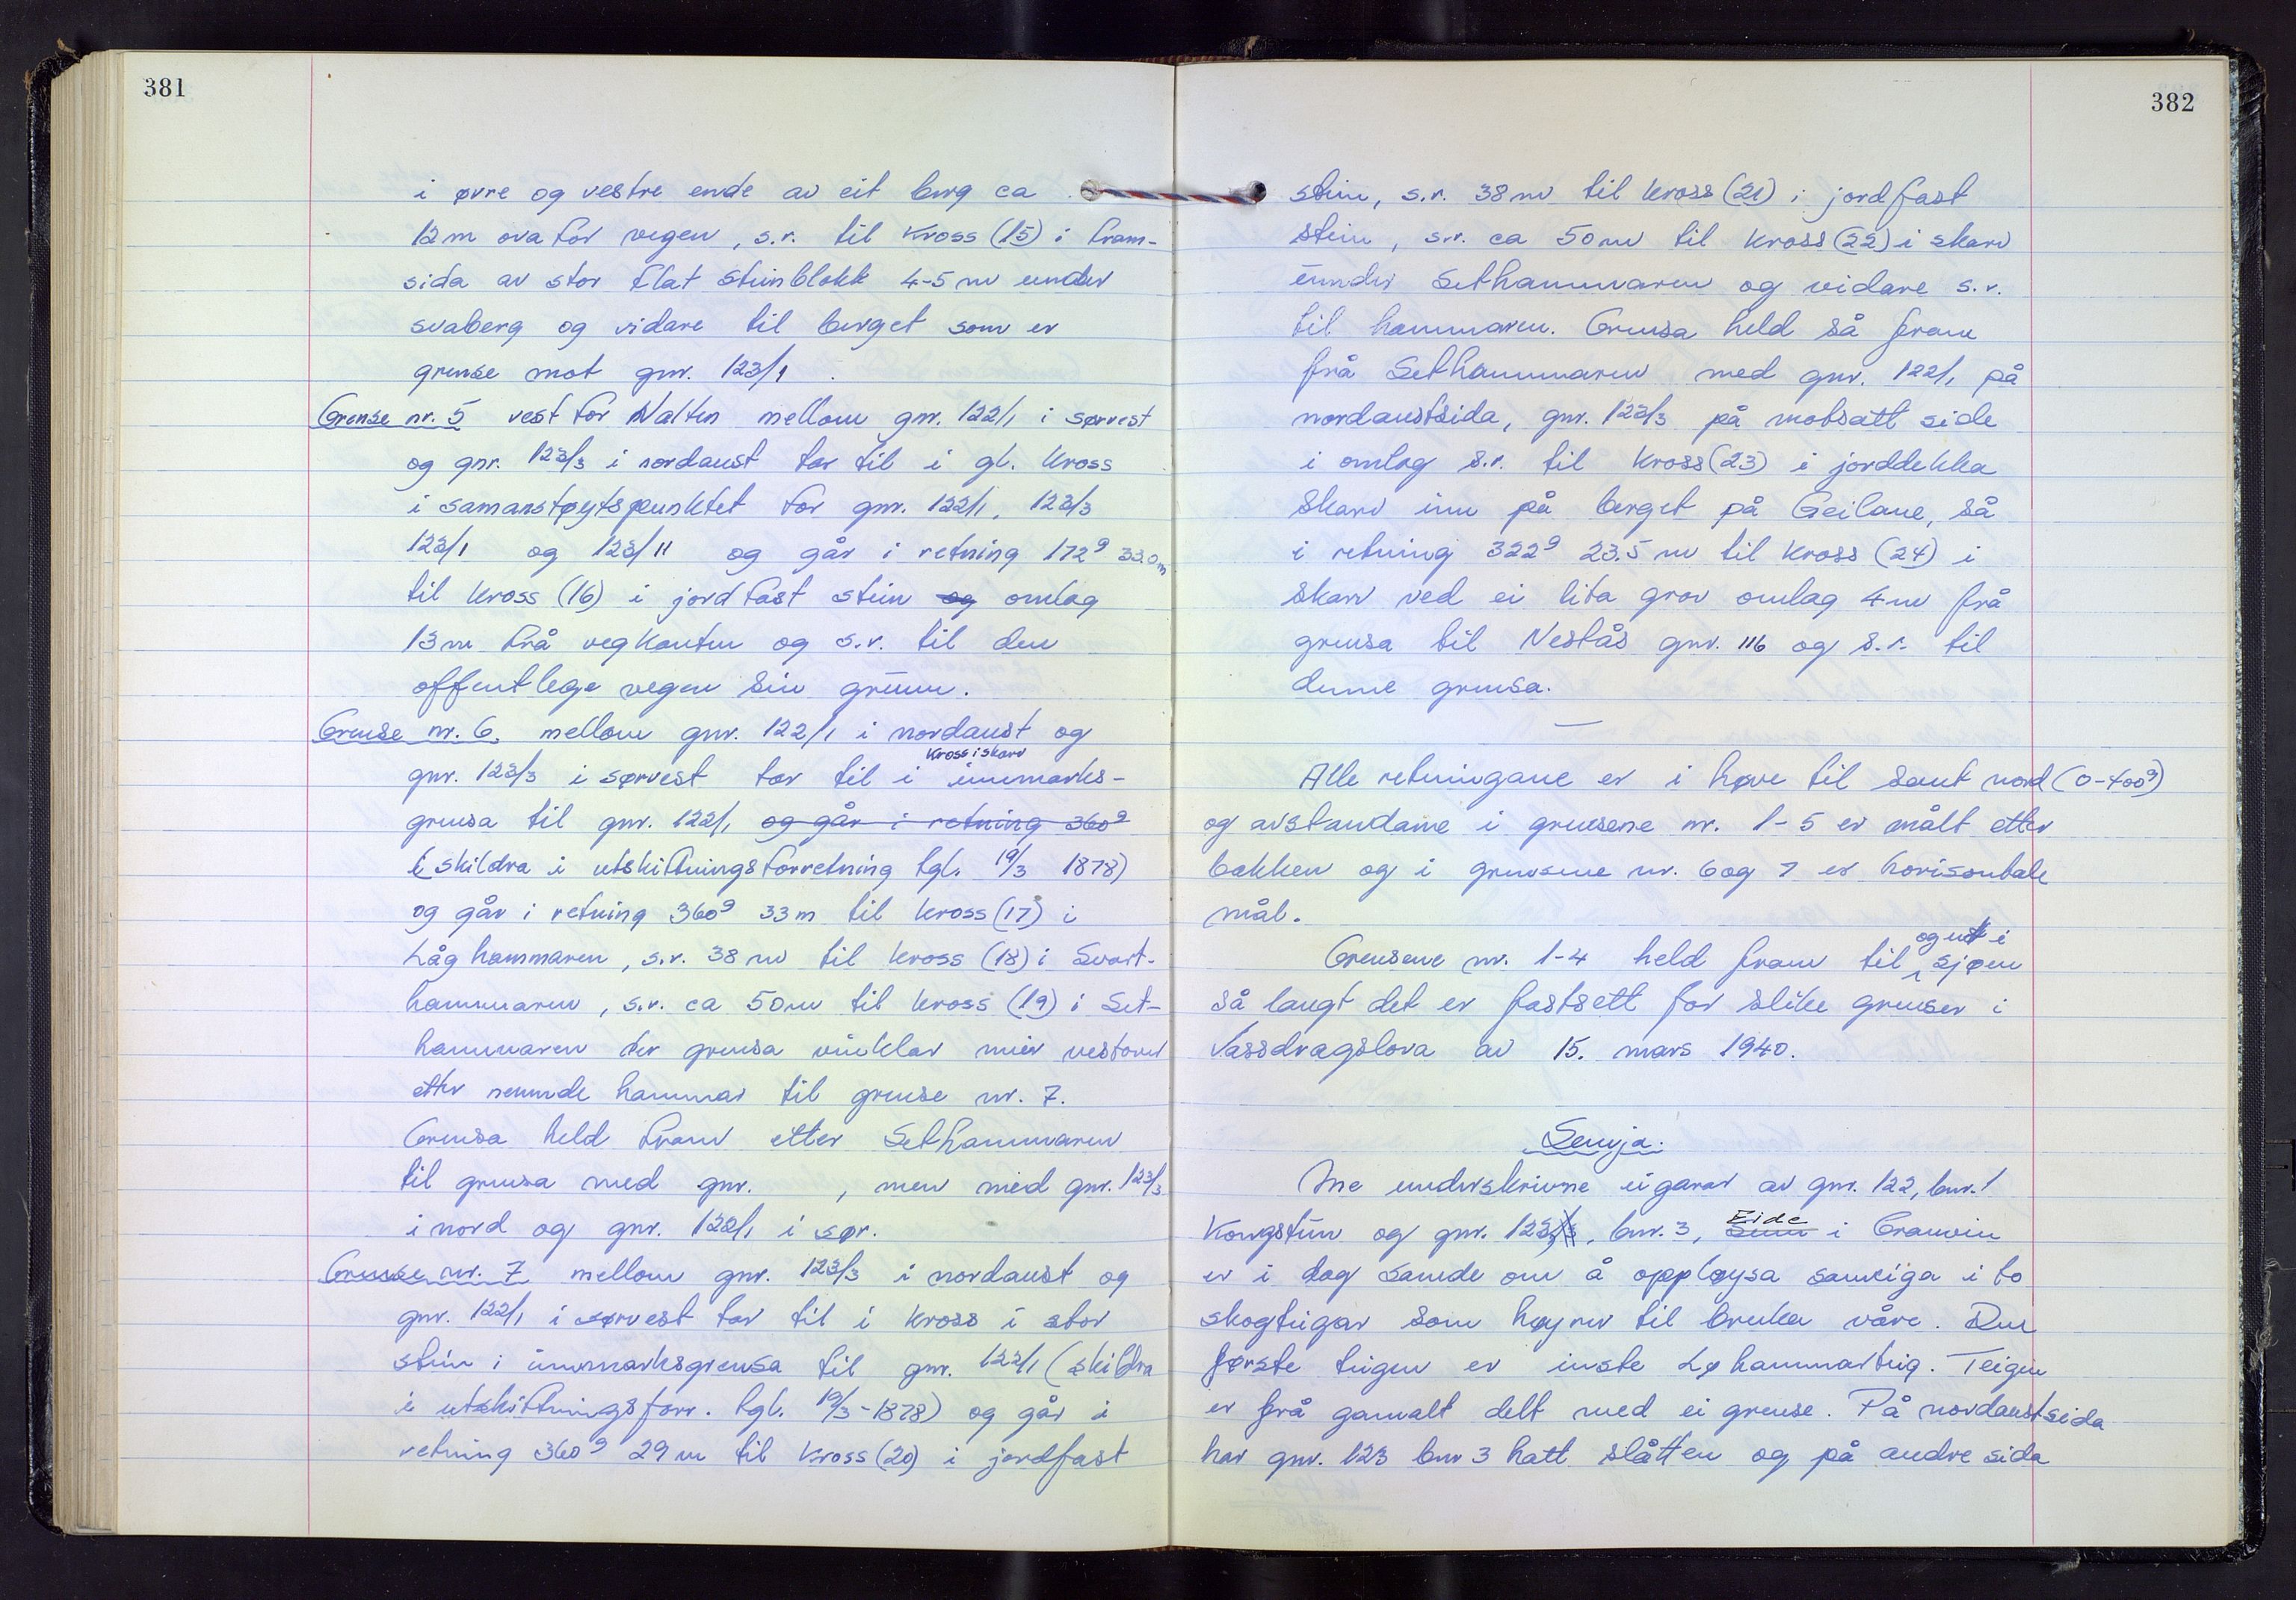 381
i øvre og vestre ende av eit berg ca
12m ovafor vegen, s.r. til kross (15) i fram-
sida av stor flat steinblokk 4-5 m under
svaberg og vidare til berget som er
grense mot gnr. 123/1.
Grense nr. 5 vest for Nalten mellom gnr. 122/1 i sørvest
og gnr. 123/3 i nordaust tar til i gl. kross
i samanstøytspunktet for gnr. 122/1, 123/3
123/1 og 123/11 og går i retning 172g 33.0m
til kross (16) i jordfast stein og omlag
13m frå vegkanten og s.r. til den
offentlege vegen sin grunn.
Grense nr. 6. mellom gnr. 122/1 i nordaust og
kross i skarv
gnr. 123/3 i sørvest tar til i innmarks-
grensa til gnr. 122/1 og går i retning 360g
(skildra i utskiftningsforretning tgl. 19/3 1878)
og går i retning 360g 33m til kross (17) i
Låghammaren, s.r. 38 m til kross (18) i Svart-
hammaren, s.r. ca 50m til kross (19) i Set-
hammaren der grensa vinklar meir vestover
etter nemnde hammar til grense nr. 7.
Grensa held fram etter Sethammaren
til grensa med gnr. , men med gnr. 123/3
i nord og gnr. 122/1 i sør.
Grense nr. 7 mellom gnr. 123/3 i nordaust og
gnr. 122/1 i sørvest tar til i kross i stor
stein i innmarksgrensa til gnr. 122/1 (skildra
i utskiftningsforr. tgl. 19/3-1878) og går i
retning 360g 29m til kross (20) i jordfast
382
stein, s.r. 38m til kross (21) i jordfast
stein, s.r. ca 50m til kross (22) i skarv
under Sethammaren og vidare s.r.
til hammaren. Grensa held så fram
frå Sethammaren med gnr. 122/1 på
nordaustsida, gnr. 123/3 på motsatt side
i omlag s.r. til kross (23) i jorddekka
skarv inn på berget på Geilane, så
i retning 322g 23.5 m til kross (24) i
skarv ved ei lita grov omlag 4m frå
grensa til Nestås gnr. 116 og s.r. til
denne grensa.
—
Alle retningane er i høve til sant nord (0-400g)
og avstandane i grensene nr. 1-5 er målt etter
bakken og i grensene nr. 6 og 7 er horisontale
mål.
og ut i
Grensene nr. 1-4 held fram til sjøen
så langt det er fastsett for slike grenser i
Vassdragslova av 15. mars 1940.
Semja.
Me underskrivne eigarar av gnr. 122, bnr. 1
Eide
Kongstun og gnr. 123/3, bnr. 3, i Granvin
er i dag samde om å oppløysa sameiga i to
skogteigar som høyrer til bruka våre. Den
første teigen er inste Løhammarteig. Teigen
er frå gamalt delt med ei grense. På nordaustsida
har gnr. 123 bnr 3 hatt slåtten og på andre sida